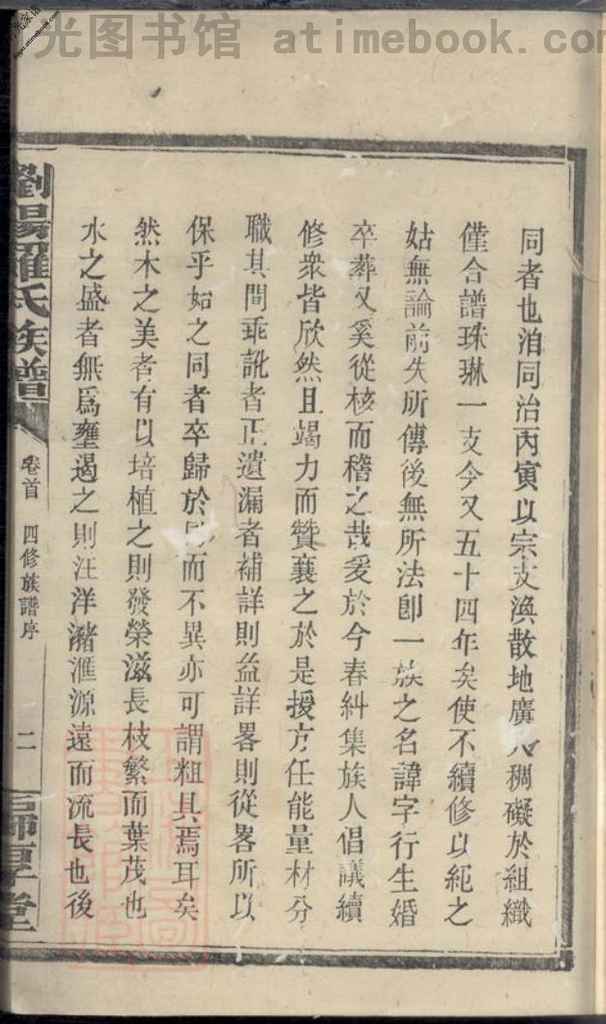 光图书馆 atimebook.com
同者也洎同治丙寅以宗支渙散地廣人稠礙於組織
僅合譜珠琳一支今又五十四年矣使不續修以紀之
姑無論前失所傳後無所法卽一族之名諱字行生婚
卒葬又奚從核而稽之哉爰於今春糾集族人倡議續
修衆皆欣然且竭力而贊襄之於是援方任能量材分
職其間乖訛者正遺漏者補詳則益詳畧則從畧所以
保乎始之同者卒歸於同而不異亦可謂粗具焉耳矣
然木之美者有以培植之則發榮滋長枝繁而葉茂也
水之盛者無爲壅遏之則汪洋瀦滙源遠而流長也後
劉陽羅氏族譜
卷首 四修族譜序 二
厚堂